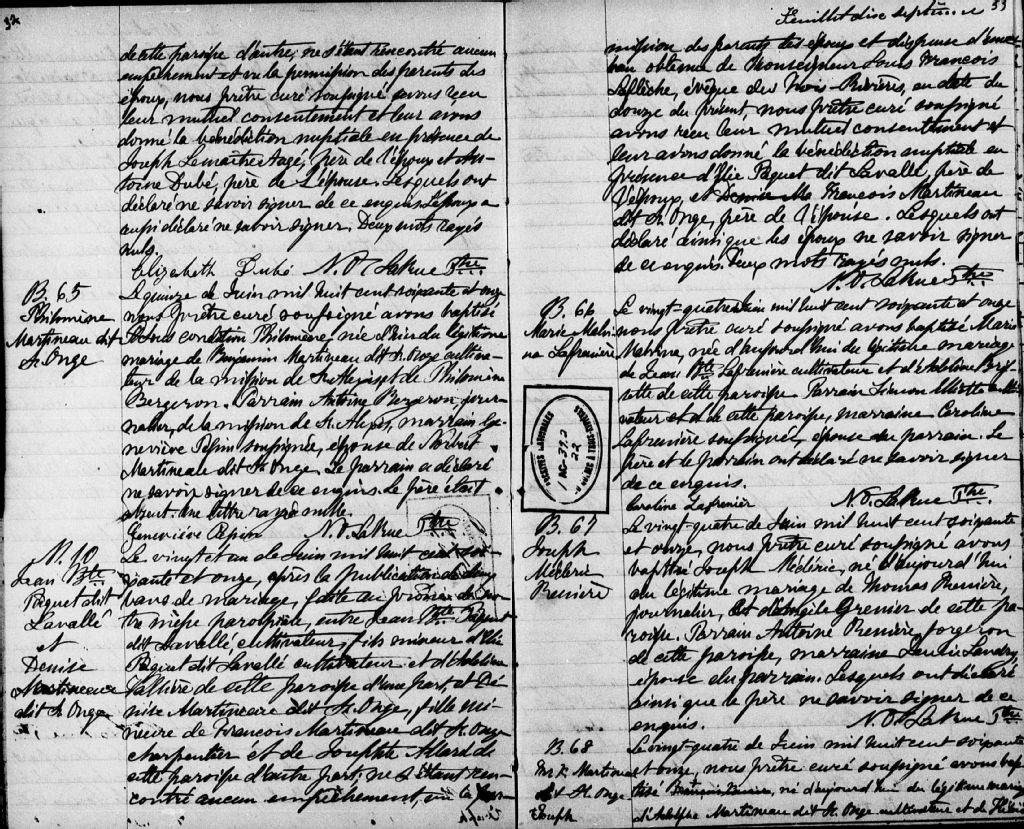 32
de cette paroisse d'autre, ne s'étant rencontré aucun
empêchement et vu la permission des parents des
époux, nous prêtre curé soussigné avons reçu
leur mutuel consentement et leur avons
donné la bénédiction nuptiale en présence de
Joseph Lemaître Augé, père de l'époux et An-
toine Dubé, père de l'épouse. Lesquels ont
déclaré ne savoir signer de ce enquis. L'époux a
aussi déclaré ne savoir signer. Deux mots rayés
nuls.
Elizabeth Dubé N. O. LaRue Ptre
B. 65
Philomène
Martineau dit
St. Onge
Le quinze de Juin mil huit cent soixante et onze
nous prêtre curé soussigné avons baptisé
sous condition Philomène, née d'hier du légitime
mariage de Benjamin Martineau dit St. Onge cultiva-
teur de la mission de et de Philomène
Bergeron. Parrain Antoine Bergeron jour-
nalier, de la mission de St. Alexis, marraine Ge-
neviève Pépin soussignée, épouse de
Martineau dit St. Onge. Le parrain a déclaré
ne savoir signer de ce enquis. Le père était
absent. Une lettre rayée nulle.
Geneviève Pepin N. O. LaRue Ptre
M. 10
Jean Bte
Paquet dit
Lavallé
et
Denise
Martineau
dit St. Onge
Le vingt et un de Juin mil huit cent soi-
xante et onze, après la publication de
bans de mariage, faite au prône de no-
tre messe paroissiale, entre Jean Bte Paquet
dit Lavallé, cultivateur, fils mineur d'Elie
Paquet dit Lavallé cultivateur et d'Adeline
de cette paroisse d'une part, et De-
nise Martineau dit St. Onge, fille mi-
neure de François Martineau dit St. Onge
charpentier et de Josephte Allard de
cette paroisse d'autre part; ne s'étant ren-
contré aucun empêchement, vu la per-
33
Feuillet dix septième
mission des parents des époux et dispense d'un
ban obtenue de Monseigneur Louis François
Laflèche, évêque des Trois-Rivières, en date du
douze du présent, nous prêtre curé soussigné
avons reçu leur mutuel consentement et
leur avons donné la bénédiction nuptiale en
présence d'Elie Paquet dit Lavallé, père de
l'époux, et François Martineau
dit St. Onge, père de l'épouse. Lesquels ont
déclaré ainsi que les époux ne savoir signer
de ce enquis. Deux mots rayés nuls.
N. O. LaRue Ptre
B. 66
Marie Malvi-
na Lafrenière
Le vingt-quatre Juin mil huit cent soixante et onze
nous prêtre curé soussigné avons baptisé Marie
Malvina, née d'aujourd'hui du légitime mariage
de Jean Bte Lafrenière cultivateur et d'Adeline
de cette paroisse. Parrain Simon culti-
vateur de cette paroisse, marraine Caroline
Lafrenière soussignée, épouse du parrain. Le
père et le parrain ont déclaré ne savoir signer
de ce enquis.
Caroline Lafrenier N. O. LaRue Ptre
B. 67
Joseph
Médéric
Prenière
Le vingt-quatre de Juin mil huit cent soixante
et onze, nous prêtre curé soussigné avons
baptisé Joseph Médéric, né d'aujourd'hui
du légitime mariage de Thomas Prenière,
journalier, et d'Angile Grenier de cette pa-
roisse. Parrain Antoine Prenière, forgeron
de cette paroisse, marraine Landry,
épouse du parrain. Lesquels ont déclaré
ainsi que le père ne savoir signer de ce
enquis.
N. O. LaRue Ptre
B. 68
Martineau
dit St. Onge
Joseph
Le vingt-quatre de Juin mil huit cent soixante
et onze, nous prêtre curé soussigné avons bap-
tisé né d'aujourd'hui du légitime mariage
d'Adolphe Martineau dit St. Onge cultivateur et de